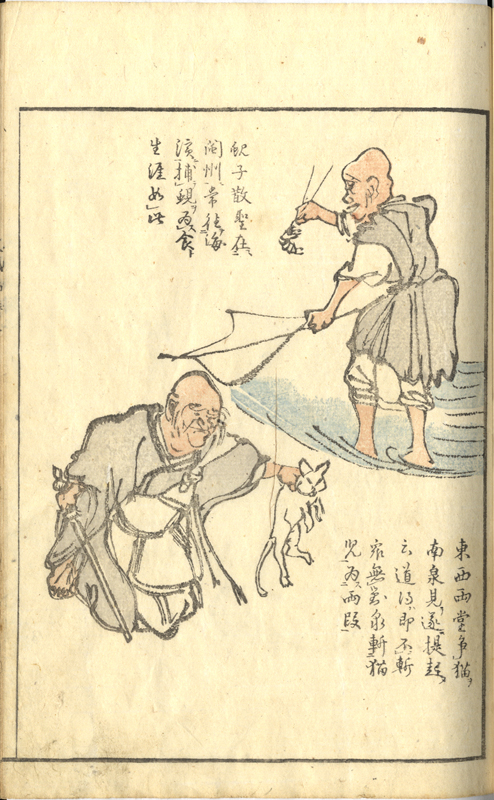 蜆子散聖在
閩州常徃海
濱捕蜆為食
生涯如此
東西両堂争猫
南泉見遂提起
云道得即不斬
衆無対泉斬猫
児為両段